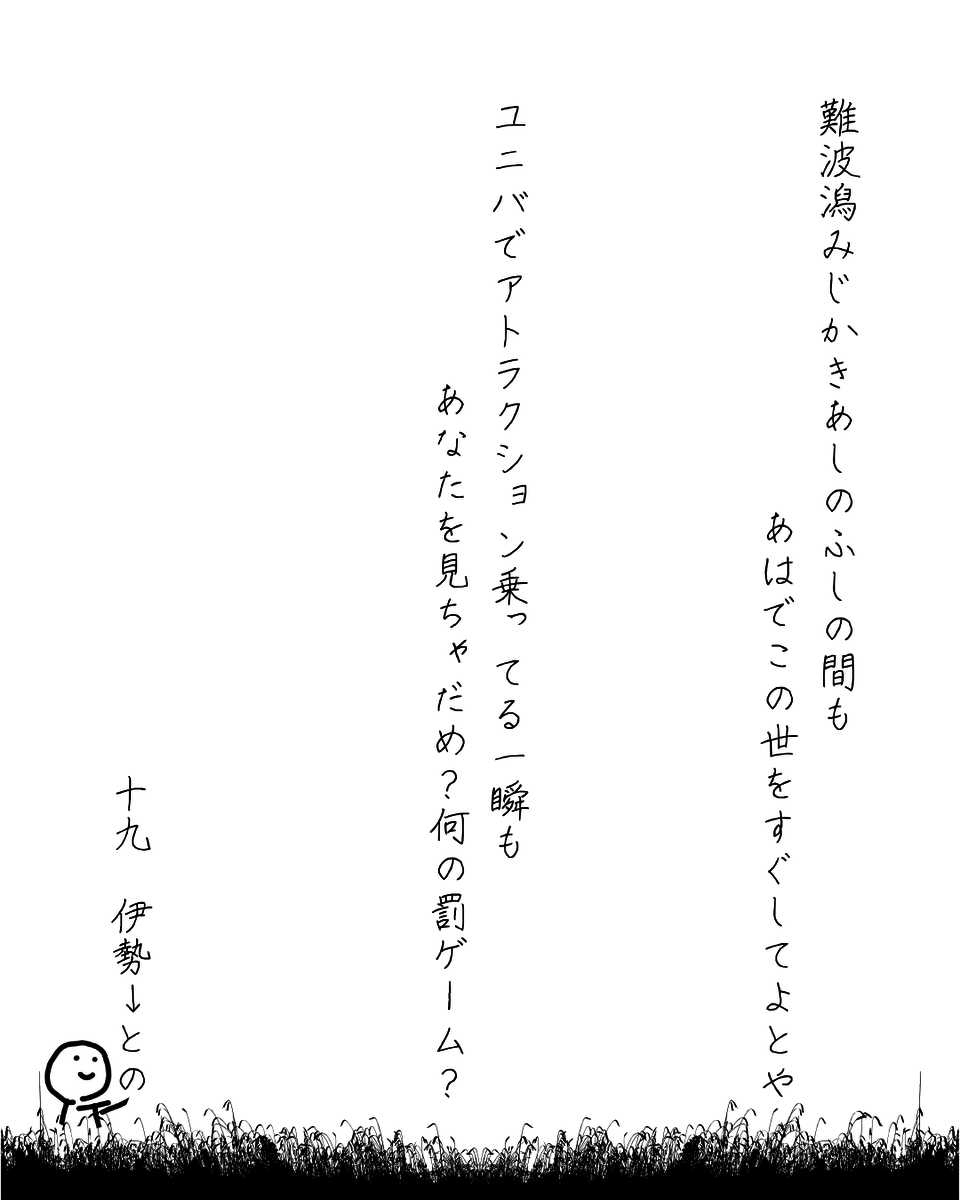 難波潟みじかきあしのふしの間も
あはでこの世をすぐしてよとや
ユニバでアトラクション乗ってる一瞬も
あなたを見ちゃだめ？何の罰ゲーム？
十九　伊勢→との